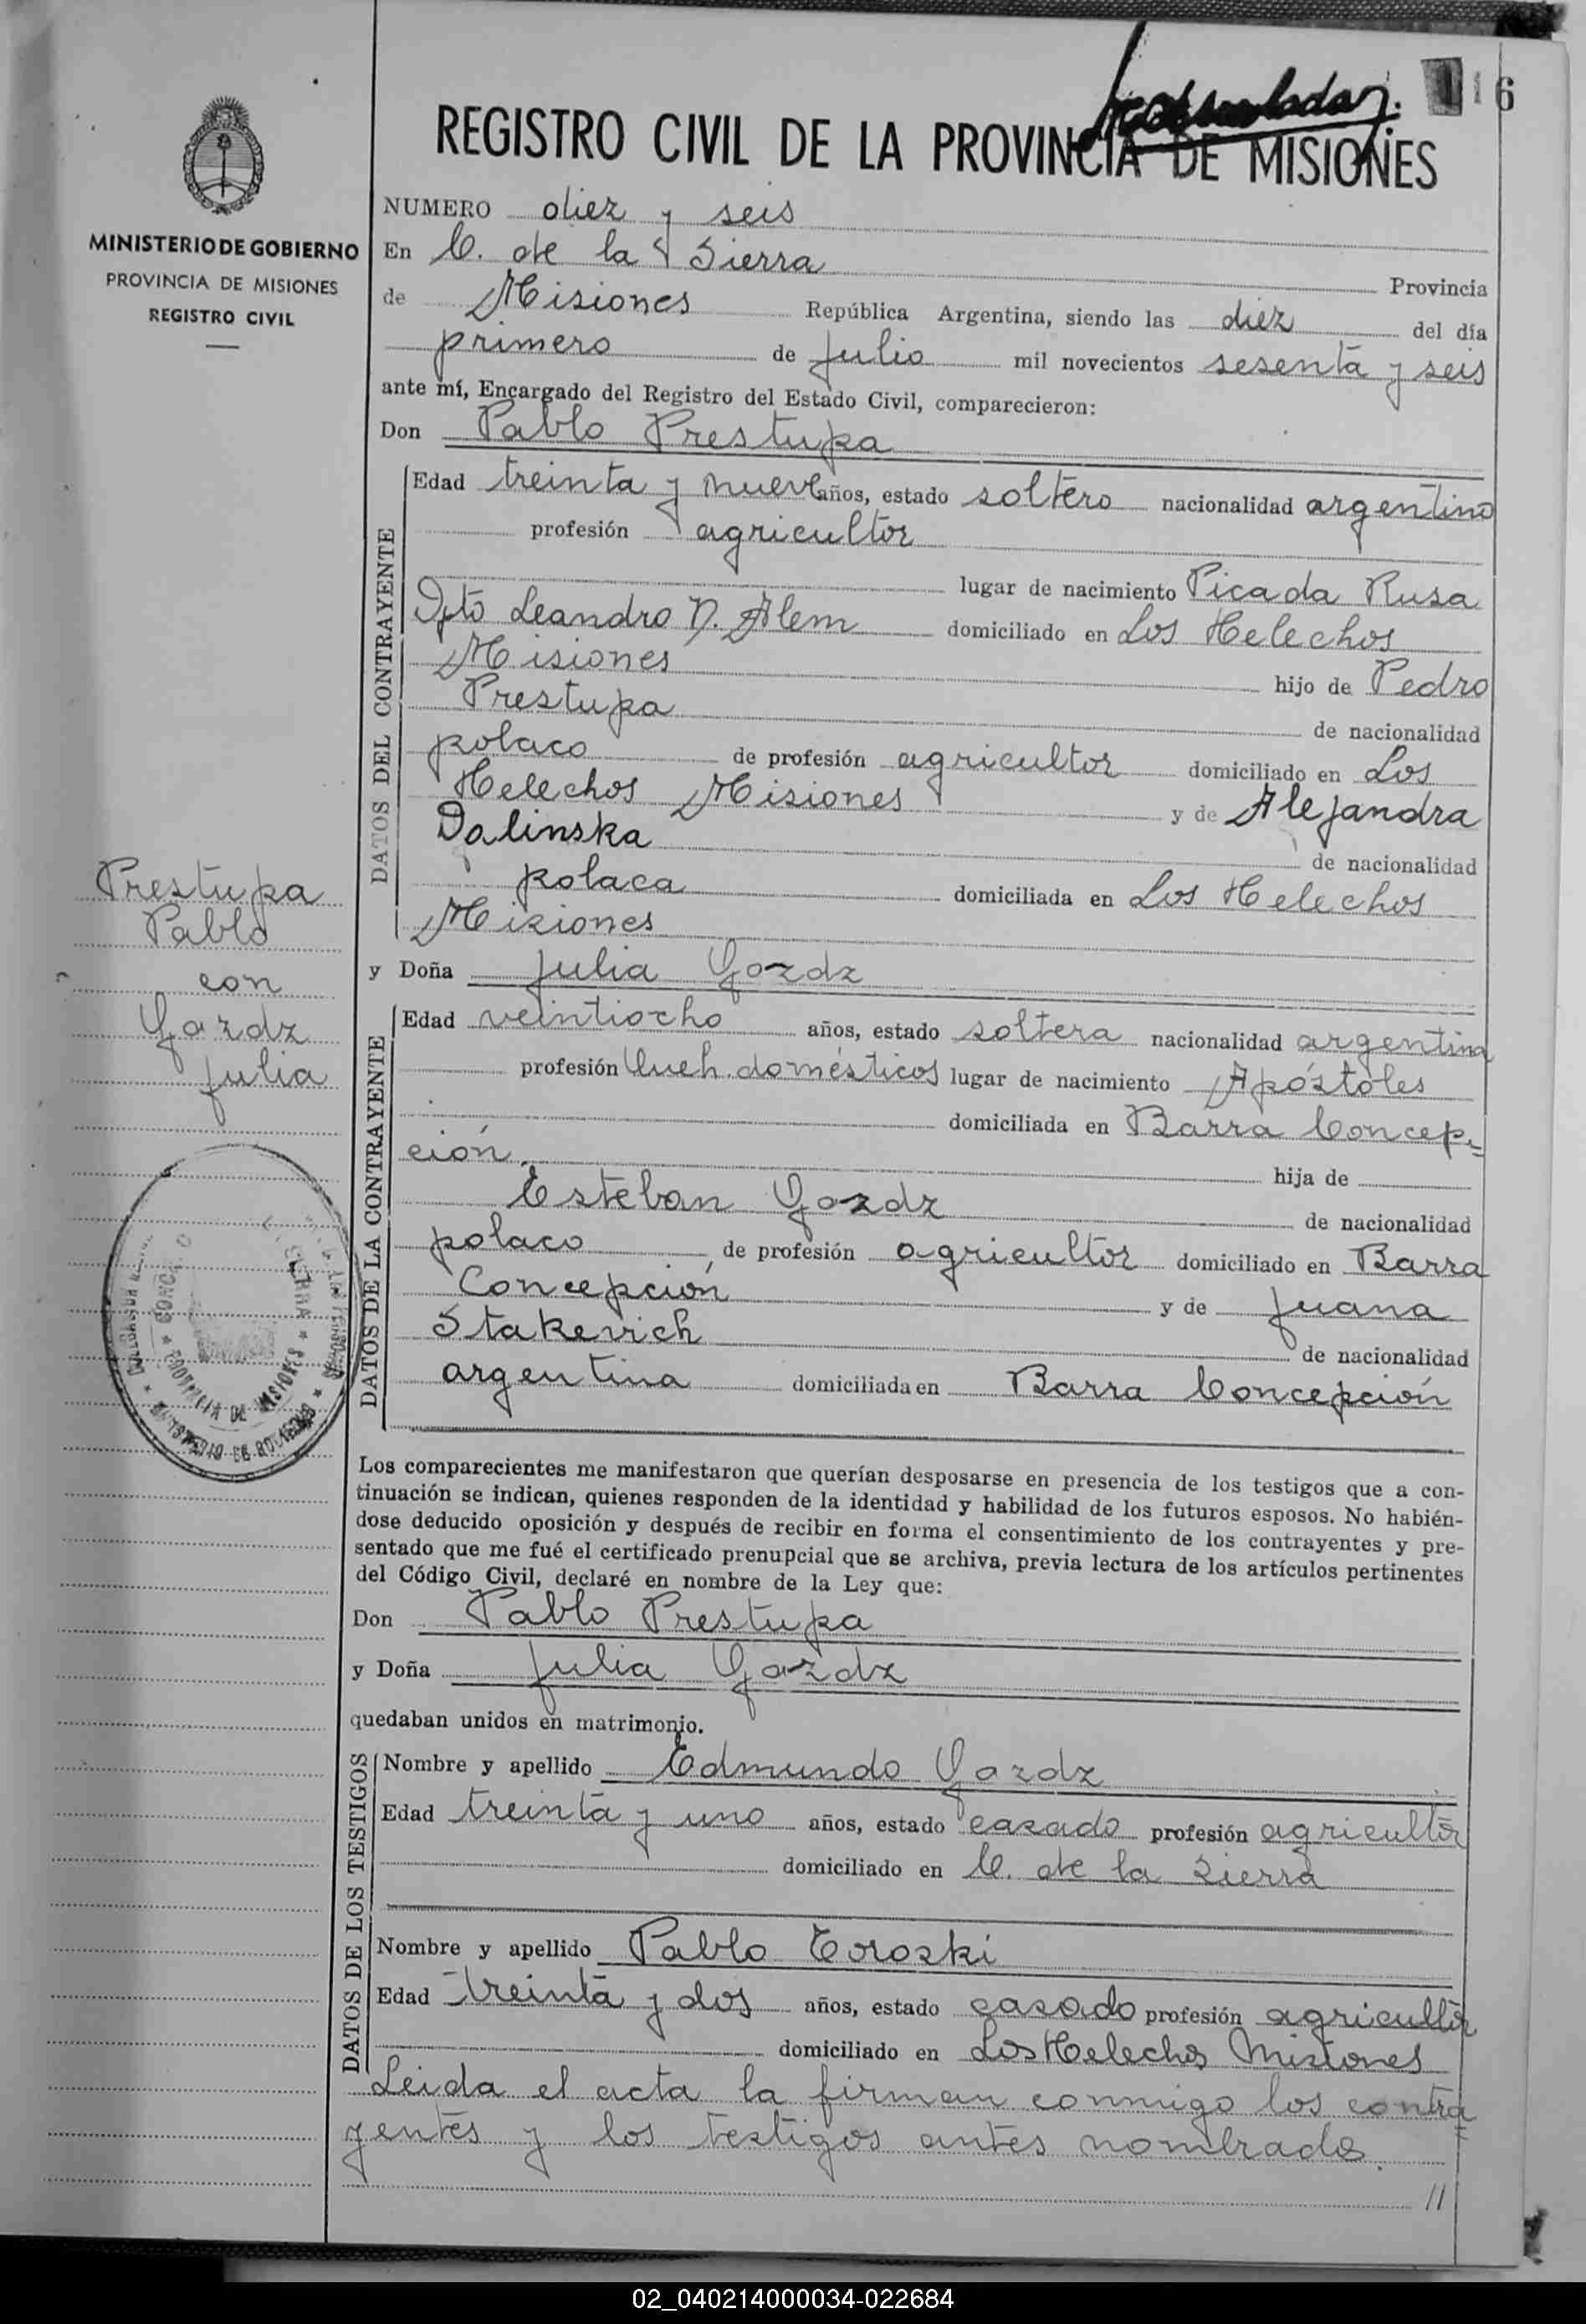 6
REGISTRO CIVIL DE LA PROVINCIA DE MISIONES
MINISTERIO DE GOBIERNO
PROVINCIA DE MISIONES
REGISTRO CIVIL
NUMERO diez y seis
En C. de la Sierra Provincia
de Misiones República Argentina, siendo las diez del día
primero de Julio mil novecientos sesenta y seis
ante mí, Encargado del Registro del Estado Civil, comparecieron:
Don Pablo Prestupa
DATOS DEL CONTRAYENTE
Edad treinta y nueve años, estado soltero nacionalidad argentino
profesión agricultor
lugar de nacimiento Picada Rusa
Dpto Leandro N. Alem domiciliado en Los Helechos
Misiones hijo de Pedro
Prestupa de nacionalidad
polaco de profesión agricultor domiciliado en Los
Helechos Misiones y de Alejandra
Dalinska de nacionalidad
polaca domiciliada en Los Helechos
Misiones
Prestupa
Pablo
con
Gozdz
Julia
y Doña Julia Gozdz
DATOS DE LA CONTRAYENTE
Edad veintiocho años, estado soltera nacionalidad argentina
profesión Queh. domésticos lugar de nacimiento Apóstoles
domiciliada en Barra Concep=
ción hija de
Esteban Gozdz de nacionalidad
polaco de profesión agricultor domiciliado en Barra
Concepción y de Juana
Stakevich de nacionalidad
argentina domiciliada en Barra Concepción
PROVINCIA DE MISIONES
MINISTERIO DE GOBIERNO
Los comparecientes me manifestaron que querían desposarse en presencia de los testigos que a con-
tinuación se indican, quienes responden de la identidad y habilidad de los futuros esposos. No habién-
dose deducido oposición y después de recibir en forma el consentimiento de los contrayentes y pre-
sentado que me fué el certificado prenupcial que se archiva, previa lectura de los artículos pertinentes
del Código Civil, declaré en nombre de la Ley que:
Don Pablo Prestupa
y Doña Julia Gozdz
quedaban unidos en matrimonio.
DATOS DE LOS TESTIGOS
Nombre y apellido Edmundo Gozdz
Edad treinta y uno años, estado casado profesión agricultor
domiciliado en C. de la Sierra
Nombre y apellido Pablo Eroski
Edad treinta y dos años, estado casado profesión agricultor
domiciliado en Los Helechos Misiones
Leida el acta la firman conmigo los contra
yentes y los testigos antes nombrados.
//
02_040214000034-022684